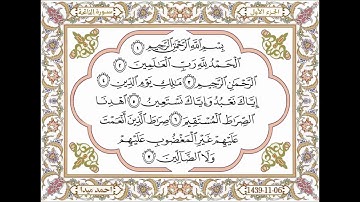 الجزء الأول
سورة الفاتحة
بِسْمِ اللَّهِ الرَّحْمَٰنِ الرَّحِيمِ ١
الْحَمْدُ لِلَّهِ رَبِّ الْعَالَمِينَ ٢
الرَّحْمَٰنِ الرَّحِيمِ ٣ مَالِكِ يَوْمِ الدِّينِ ٤
إِيَّاكَ نَعْبُدُ وَإِيَّاكَ نَسْتَعِينُ ٥ اهْدِنَا
الصِّرَاطَ الْمُسْتَقِيمَ ٦ صِرَاطَ الَّذِينَ أَنْعَمْتَ
عَلَيْهِمْ غَيْرِ الْمَغْضُوبِ عَلَيْهِمْ
وَلَا الضَّالِّينَ ٧
احمد ميدا
1439-11-06